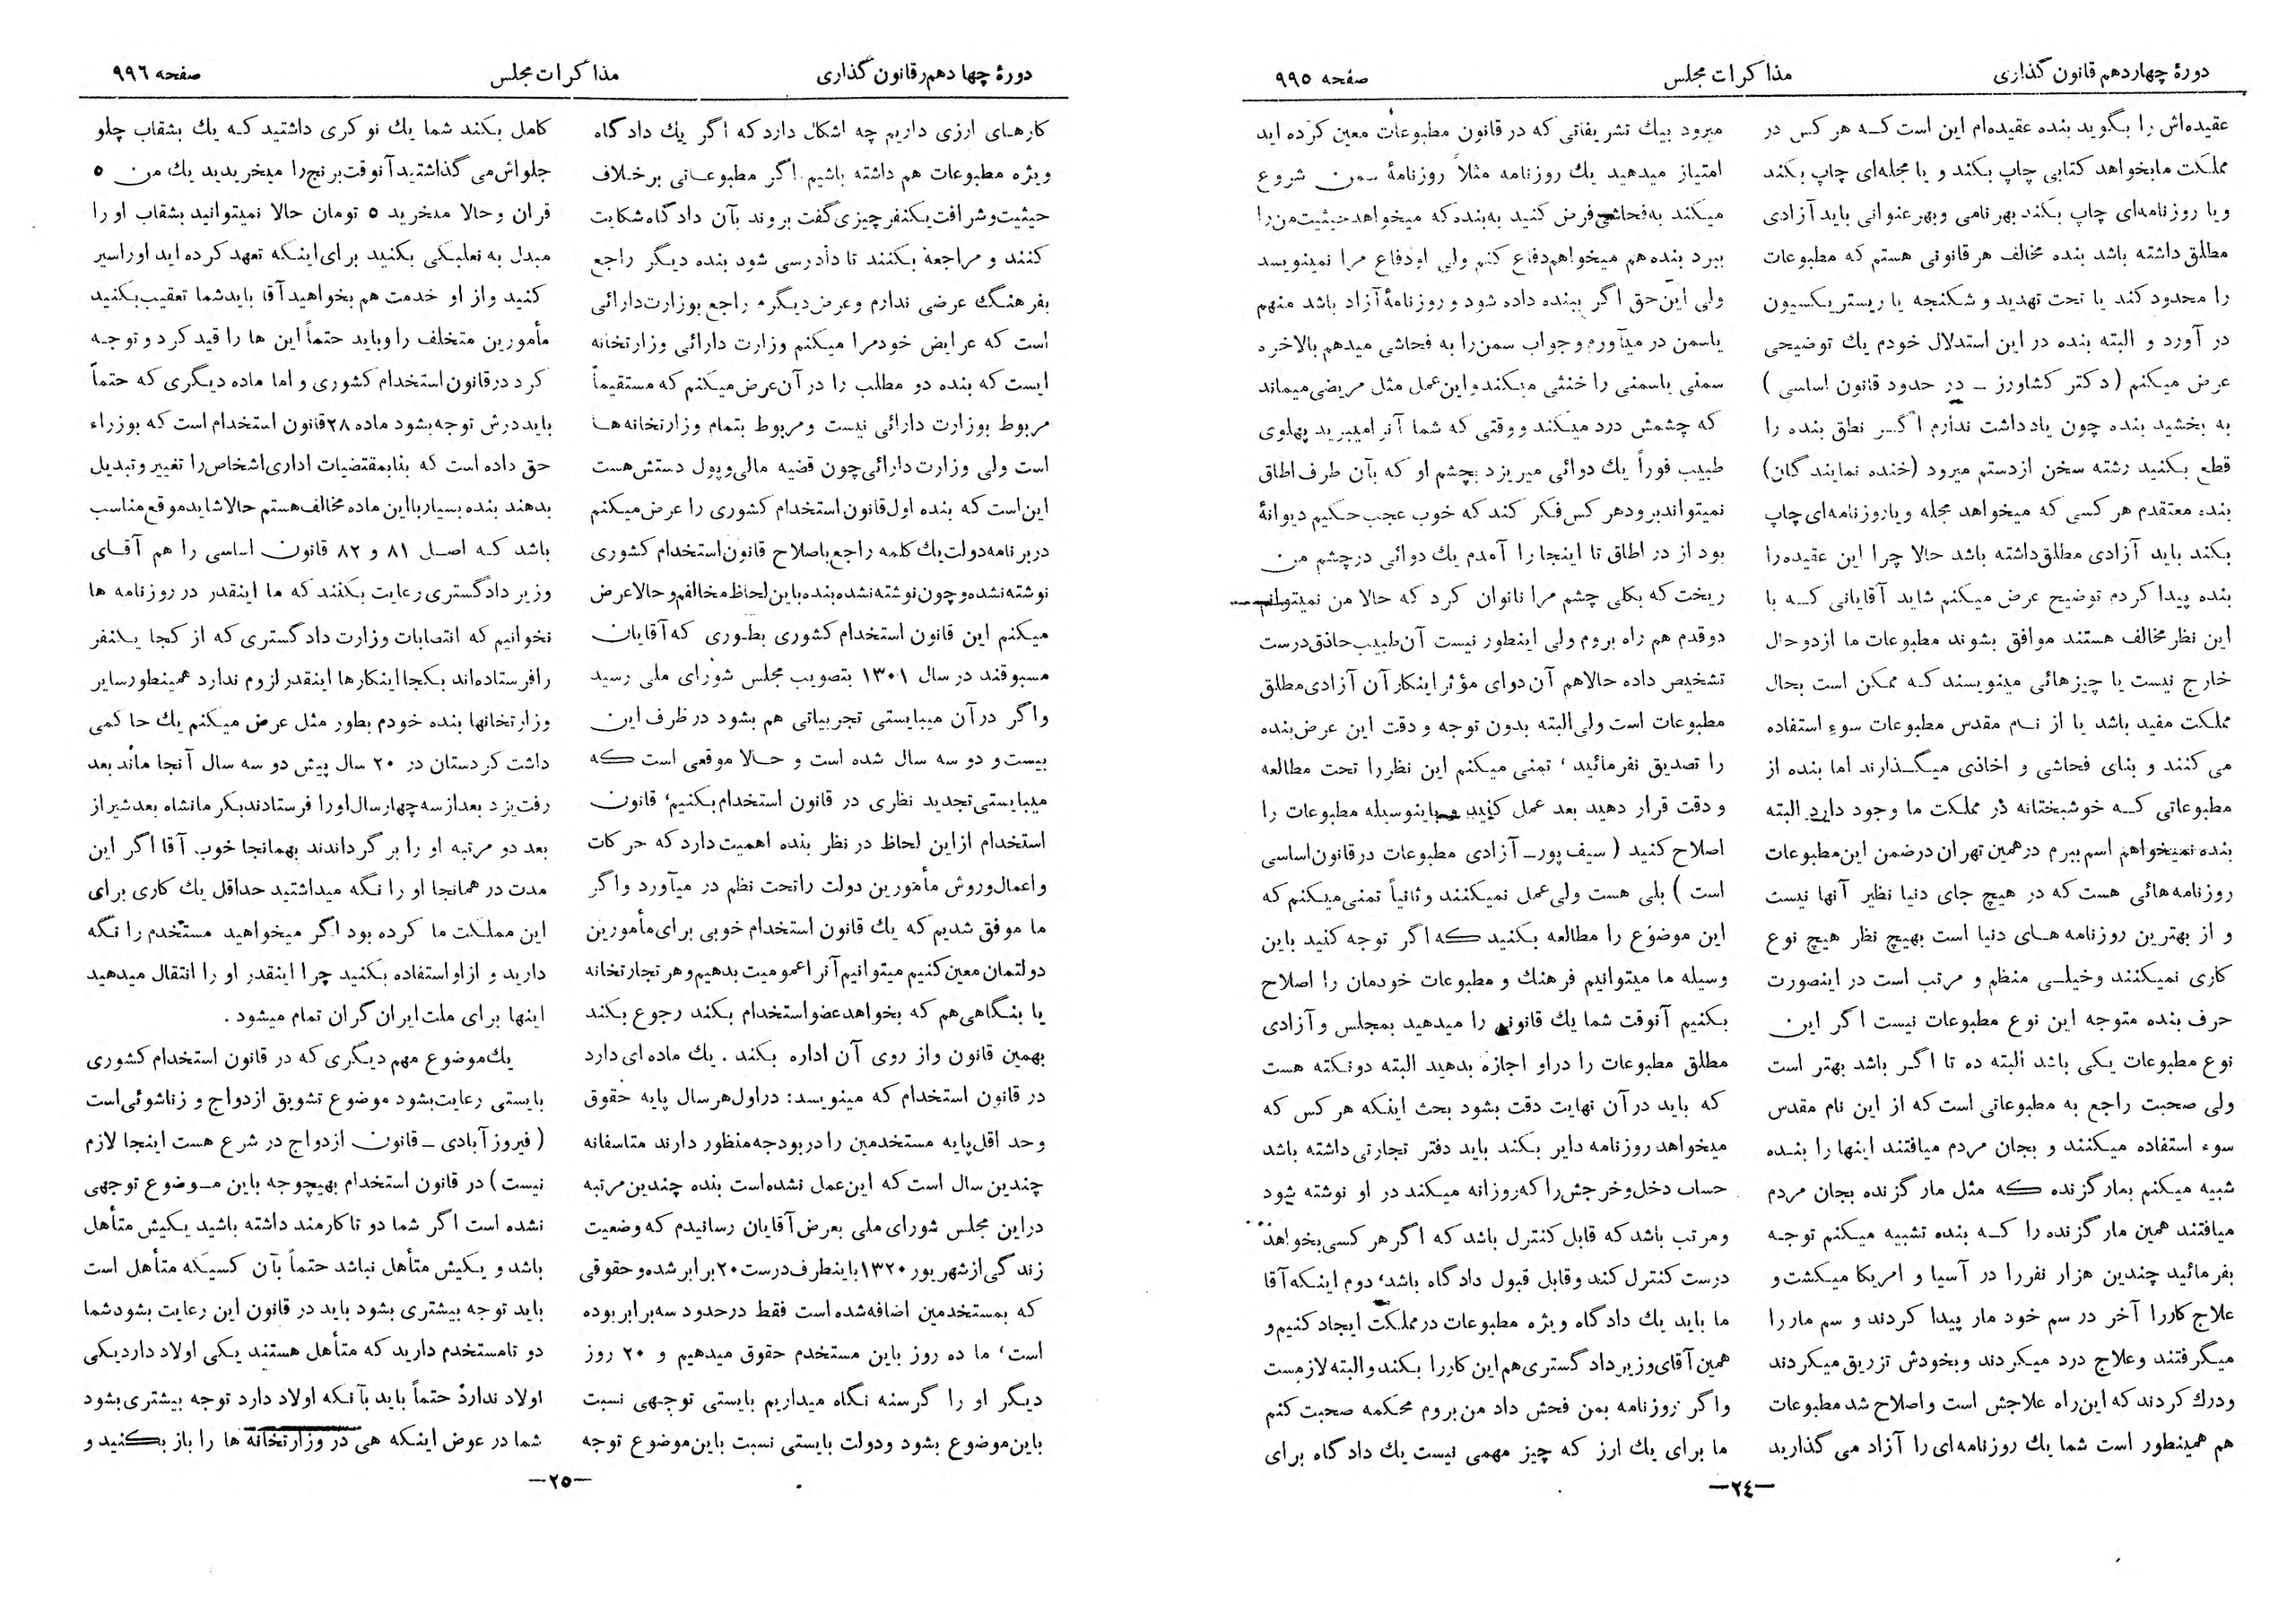 دورهٔ چهاردهم قانون گذاری
مذاکرات مجلس
صفحه ۹۹۵
عقیده‌اش را بگوید بنده عقیده‌ام این است که هر کس در
مملکت ما بخواهد کتابی چاپ بکند و یا مجله‌ای چاپ بکند
و یا روزنامه‌ای چاپ بکند بهر نامی و بهر عنوانی باید آزادی
مطلق داشته باشد بنده مخالف هر قانونی هستم که مطبوعات
را محدود کند یا تحت تهدید و شکنجه یا ریستریکسیون
در آورد و البته بنده در این استدلال خودم یك توضیحی
عرض میکنم (دکتر کشاورز ـ در حدود قانون اساسی)
به بخشید بنده چون یادداشت ندارم اگر نطق بنده را
قطع بکنید رشته سخن ازدستم میرود (خنده نمایندگان)
بنده معتقدم هر کسی که میخواهد مجله و یا روزنامه‌ای چاپ
بکند باید آزادی مطلق داشته باشد حالا چرا این عقیده را
بنده پیدا کردم توضیح عرض میکنم شاید آقایانی که با
این نظر مخالف هستند موافق بشوند مطبوعات ما از دو حال
خارج نیست یا چیزهائی مینویسند که ممکن است بحال
مملکت مفید باشد یا از نام مقدس مطبوعات سوء استفاده
می کنند و بنای فحاشی و اخاذی میگذارند اما بنده از
مطبوعاتی که خوشبختانه در مملکت ما وجود دارد البته
بنده نمیخواهم اسم ببرم در همین تهران در ضمن این مطبوعات
روزنامه هائی هست که در هیچ جای دنیا نظیر آنها نیست
و از بهترین روزنامه های دنیا است بهیچ نظر هیچ نوع
کاری نمیکنند وخیلی منظم و مرتب است در اینصورت
حرف بنده متوجه این نوع مطبوعات نیست اگر این
نوع مطبوعات یکی باشد البته ده تا اگر باشد بهتر است
ولی صحبت راجع به مطبوعاتی است که از این نام مقدس
سوء استفاده میکنند و بجان مردم میافتند اینها را بنده
شبیه میکنم بمار گزنده که مثل مار گزنده بجان مردم
میافتند همین مار گزنده را که بنده تشبیه میکنم توجه
بفرمائید چندین هزار نفررا در آسیا و امریکا میکشت و
علاج کاررا آخر در سم خود مار پیدا کردند و سم ماررا
میگرفتند و علاج درد میکردند و بخودش تزریق میکردند
ودرك کردند که این راه علاجش است و اصلاح شد مطبوعات
هم همینطور است شما یك روزنامه‌ای را آزاد می گذارید
میرود بیك تشریفاتی که در قانون مطبوعات معین کرده اید
امتیاز میدهید یك روزنامه مثلاً روزنامهٔ سمن شروع
میکند به فحاشی فرض کنید به بنده که میخواهد حیثیت من را
ببرد بنده هم میخواهم دفاع کنم ولی او دفاع مرا نمینویسد
ولی این حق اگر ببنده داده شود و روزنامهٔ آزاد باشد منهم
یاسمن در میآورم و جواب سمن را به فحاشی میدهم بالاخره
سمنی یاسمنی را خنثی میکند و این عمل مثل مریضی میماند
که چشمش درد میکند و وقتی که شما آنرا میبرید پهلوی
طبیب فوراً یك دوائی میریزد بچشم او که بآن طرف اطاق
نمیتواند برود هر کس فکر کند که خوب عجب حکیم دیوانهٔ
بود از در اطاق تا اینجا را آمدم یك دوائی در چشم من
ریخت که بکلی چشم مرا ناتوان کرد که حالا من نمیتوانم
دو قدم هم راه بروم ولی اینطور نیست آن طبیب حاذق درست
تشخیص داده حالا هم آن دوای مؤثر اینکار آن آزادی مطلق
مطبوعات است ولی البته بدون توجه و دقت این عرض بنده
را تصدیق نفرمائید ، تمنی میکنم این نظر را تحت مطالعه
و دقت قرار دهید بعد عمل کنید و باینوسیله مطبوعات را
اصلاح کنید ( سیف پور ـ آزادی مطبوعات در قانون اساسی
است ) بلی هست ولی عمل نمیکنند و ثانیاً تمنی میکنم که
این موضوع را مطالعه بکنید که اگر توجه کنید باین
وسیله ما میتوانیم فرهنك و مطبوعات خودمان را اصلاح
بکنیم آنوقت شما یك قانونی را میدهید بمجلس و آزادی
مطلق مطبوعات را دراو اجازه بدهید البته دو نکته هست
که باید در آن نهایت دقت بشود بحث اینکه هر کس که
میخواهد روزنامه دایر بکند باید دفتر تجارتی داشته باشد
حساب دخل و خرجش را که روزانه میکند در او نوشته شود
و مرتب باشد که قابل کنترل باشد که اگر هر کسی بخواهد
درست کنترل کند و قابل قبول دادگاه باشد، دوم اینکه آقا
ما باید یك دادگاه ویژه مطبوعات در مملکت ایجاد کنیم و
همین آقای وزیر دادگستری هم این کار را بکند و البته لازمست
و اگر روزنامه بمن فحش داد من بروم محکمه صحبت کنم
ما برای یك ارز که چیز مهمی نیست یك دادگاه برای
ـ۲٤ـ
دورهٔ چهاد‌هم‌ر قانون گذاری
مذاکرات مجلس
صفحه ۹۹٦
کارهای ارزی داریم چه اشکال دارد که اگر یك دادگاه
ویژه مطبوعات هم داشته باشیم اگر مطبوعاتی برخلاف
حیثیت و شرافت یکنفر چیزی گفت بروند بآن دادگاه شکایت
کنند و مراجعه بکنند تا دادرسی شود بنده دیگر راجع
بفرهنگ عرضی ندارم وعرض دیگرم راجع بوزارت دارائی
است که عرایض خودمرا میکنم وزارت دارائی وزارتخانه
ایست که بنده دو مطلب را در آن عرض میکنم که مستقیماً
مربوط بوزارت دارائی نیست و مربوط بتمام وزارتخانه ها
است ولی وزارت دارائی چون قضیه مالی و پول دستش هست
این است که بنده اول قانون استخدام کشوری را عرض میکنم
در برنامه دولت یك کلمه راجع باصلاح قانون استخدام کشوری
نوشته نشده و چون نوشته نشده بنده باین لحاظ مخالفم و حالا عرض
میکنم این قانون استخدام کشوری بطوری که آقایان
مسبوقند در سال ۱۳۰۱ بتصویب مجلس شورای ملی رسید
واگر در آن میبایستی تجربیاتی هم بشود در ظرف این
بیست و دو سه سال شده است و حالا موقعی است که
میبایستی تجدید نظری در قانون استخدام بکنیم، قانون
استخدام از این لحاظ در نظر بنده اهمیت دارد که حرکات
واعمال وروش مأمورین دولت را تحت نظم در میآورد واگر
ما موفق شدیم که یك قانون استخدام خوبی برای مأمورین
دولتمان معین کنیم میتوانیم آنرا عمومیت بدهیم و هر تجارتخانه
یا بنگاهی هم که بخواهد عضو استخدام بکند رجوع بکند
بهمین قانون واز روی آن اداره بکند . یك ماده ای دارد
در قانون استخدام که مینویسد: در اول هر سال پایه حقوق
وحد اقل پایه مستخدمین را در بودجه منظور دارند متاسفانه
چندین سال است که این عمل نشده است بنده چندین مرتبه
در این مجلس شورای ملی بعرض آقایان رسانیدم که وضعیت
زندگی از شهریور ۱۳۲۰ باینطرف درست ۲۰ برابر شده و حقوقی
که بمستخدمین اضافه شده است فقط در حدود سه برابر بوده
است، ما ده روز باین مستخدم حقوق میدهیم و ۲۰ روز
دیگر او را گرسنه نگاه میداریم بایستی توجهی نسبت
باین موضوع بشود ودولت بایستی نسبت باین موضوع توجه
کامل بکند شما یك نوکری داشتید که یك بشقاب چلو
جلواش می گذاشتید آنوقت برنج را میخریدید یك من ٥
قران و حالا میخرید ٥ تومان حالا نمیتوانید بشقاب او را
مبدل به نعلبکی بکنید برای اینکه تعهد کرده اید او را سیر
کنید واز او خدمت هم بخواهید آقا باید شما تعقیب بکنید
مأمورین متخلف را و باید حتماً این ها را قید کرد و توجه
کرد در قانون استخدام کشوری و اما ماده دیگری که حتماً
باید درش توجه بشود ماده ۲۸ قانون استخدام است که بوزراء
حق داده است که بنابمقتضیات اداری اشخاص را تغییر و تبدیل
بدهند بنده بسیار با این ماده مخالف هستم حالا شاید موقع مناسب
باشد که اصل ۸۱ و ۸۲ قانون اساسی را هم آقای
وزیر دادگستری رعایت بکنند که ما اینقدر در روزنامه ها
نخوانیم که انتصابات وزارت دادگستری که از کجا یکنفر
را فرستاده‌اند بکجا اینکارها اینقدر لزوم ندارد همینطور سایر
وزارتخانها بنده خودم بطور مثل عرض میکنم یك حاکمی
داشت کردستان در ۲۰ سال پیش دو سه سال آنجا ماند بعد
رفت یزد بعد از سه چهار سال او را فرستادند بکرمانشاه بعد شیراز
بعد دو مرتبه او را برگرداندند بهمانجا خوب آقا اگر این
مدت در همانجا او را نگه میداشتید حداقل یك کاری برای
این مملکت ما کرده بود اگر میخواهید مستخدم را نگه
دارید و از او استفاده بکنید چرا اینقدر او را انتقال میدهید
اینها برای ملت ایران گران تمام میشود .
یك موضوع مهم دیگری که در قانون استخدام کشوری
بایستی رعایت بشود موضوع تشویق ازدواج و زناشوئی است
( فیروز آبادی ـ قانون ازدواج در شرع هست اینجا لازم
نیست ) در قانون استخدام بهیچوجه باین موضوع توجهی
نشده است اگر شما دو تا کارمند داشته باشید یکیش متأهل
باشد و یکیش متأهل نباشد حتماً بآن کسیکه متأهل است
باید توجه بیشتری بشود باید در قانون این رعایت بشود شما
دو تا مستخدم دارید که متأهل هستند یکی اولاد دارد یکی
اولاد ندارد حتماً باید بآنکه اولاد دارد توجه بیشتری بشود
شما در عوض اینکه هی در وزارتخانه ها را باز بکنید و
ـ۲٥ـ